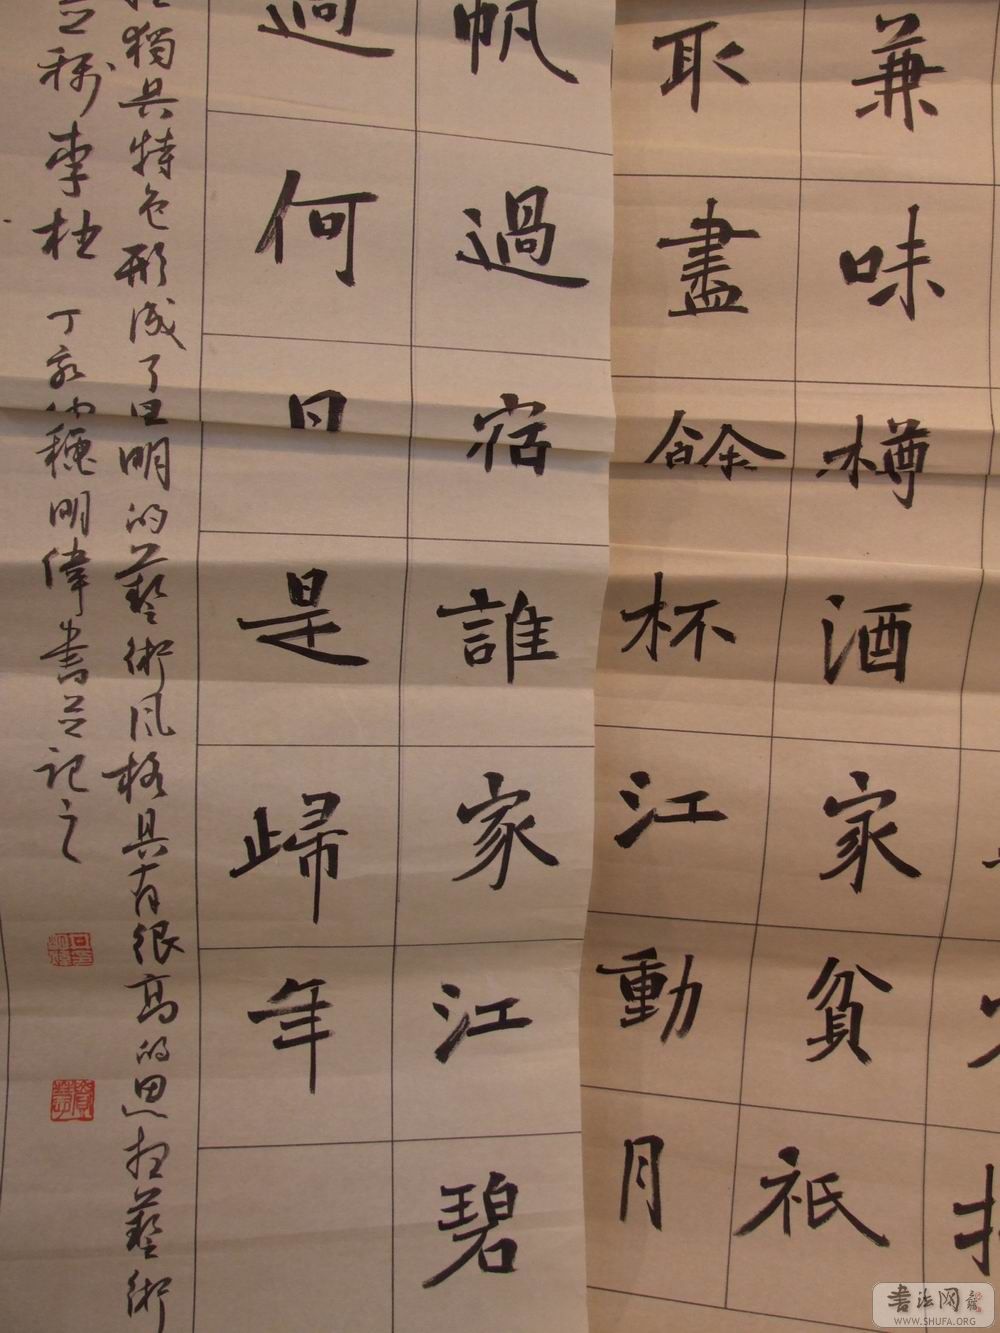 兼味樽酒家貧祇
取盡餘杯江動月
帆過宿誰家江碧
過何日是歸年
獨具特色形成了明的藝術風格具有很高的思想藝術
並稱李杜 丁亥穗明偉書並記之
書法网
WWW.SHUFA.ORG